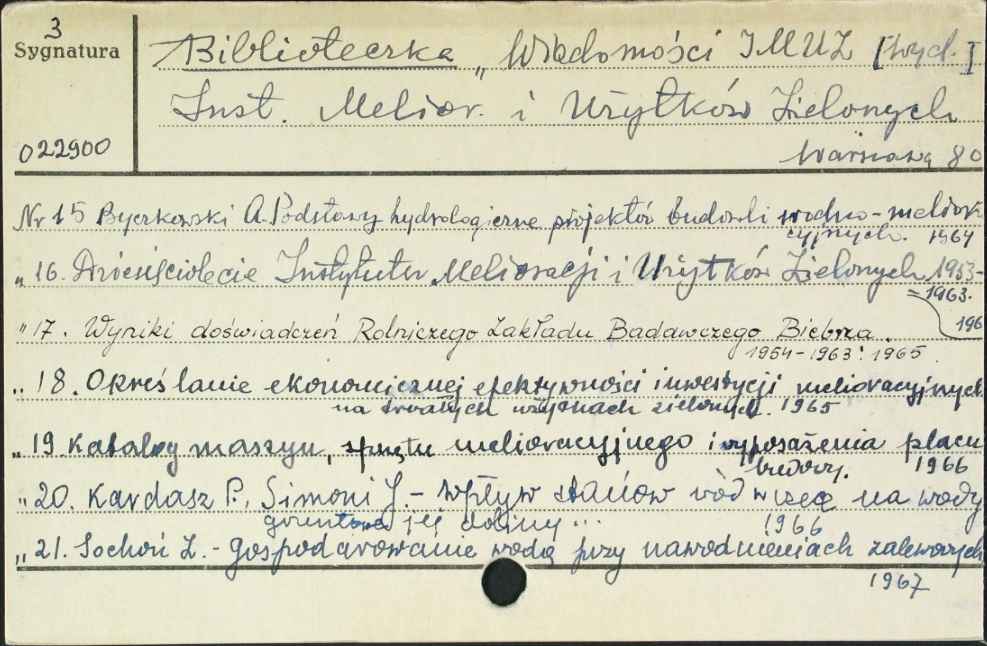 3
Sygnatura
022900
Biblioteczka „Wiadomości IMUZ [wyd.]
Inst. Melior. i Użytków Zielonych
Warszawa 80
Nr 15 Byczkowski A. Podstawy hydrologiczne projektów budowli wodno-meliora
cyjnych. 1964
„ 16. Dziesięciolecie Instytutu Melioracji i Użytków Zielonych 1953-
=1963.
196
„ 17. Wyniki doświadczeń Rolniczego Zakładu Badawczego Biebrza.
1954-1963. 1965.
„ 18. Określanie ekonomicznej efektywności inwestycji melioracyjnych
na trwałych użytkach zielonych. 1965
„ 19 Katalog maszyn, sprzętu melioracyjnego i wyposażenia placu
budowy. 1966
„ 20. Kardasz P., Simoni J. - Wpływ stanów wód w rzece na wody
gruntowe jej doliny... 1966
„ 21. Sochoń Z. - Gospodarowanie wodą przy nawodnieniach zalewowych
1967